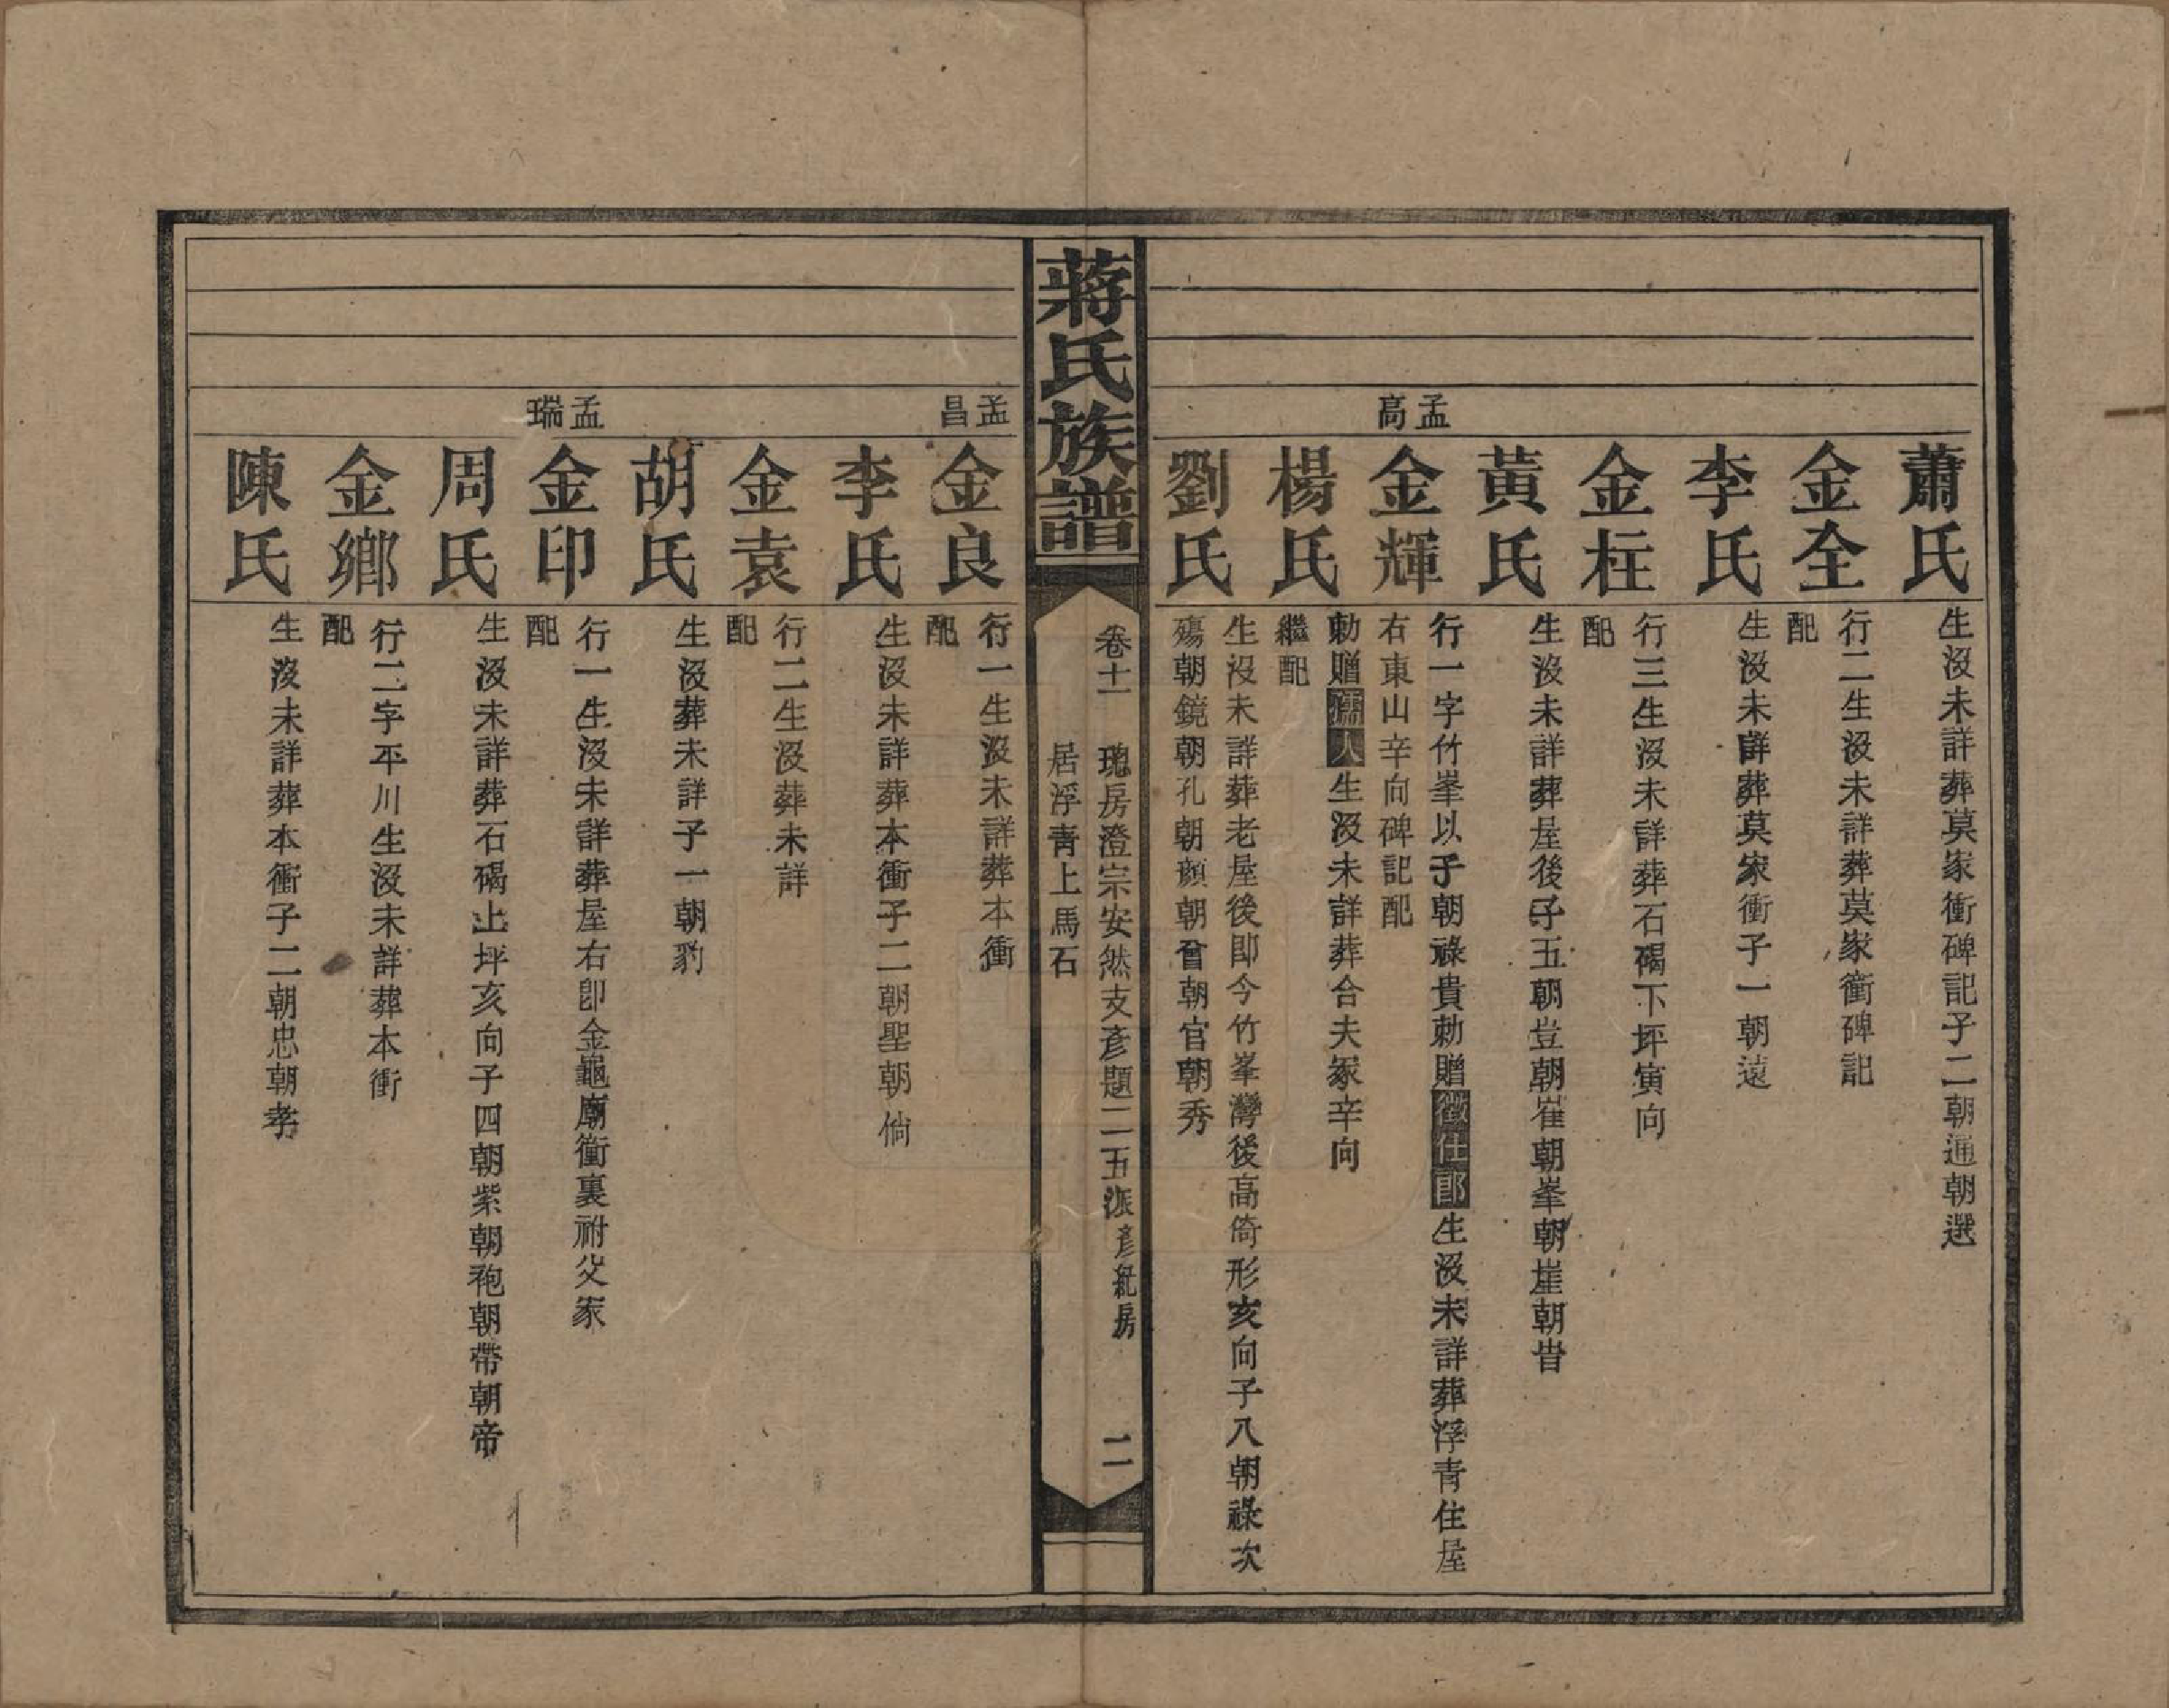 蕭氏
生沒未詳葬莫家衝碑記子二朝通朝選
金全
行二生沒未詳葬莫家衝碑記
配
李氏
生沒未詳葬莫家衝子一朝遠
金柱
行三生沒未詳葬石碣下坪寅向
配
黃氏
生沒未詳葬屋後子五朝豈朝崔朝峯朝崖朝旹
孟高
金輝
行一字竹峯以子朝祿貴勅贈徵仕郎生沒未詳葬浮青住屋
右東山辛向碑記配
楊氏
勅贈孺人生沒未詳葬合夫冢辛向
繼配
劉氏
生沒未詳葬老屋後卽今竹峯灣後高倚形亥向子八朝祿次
殤朝鏡朝孔朝顏朝會朝官朝秀
蔣氏族譜
卷十一
瑰房澄宗安然支彥題二五派彥紕房
居浮青上馬石
二
孟昌
金良
行一生沒未詳葬本衝
配
李氏
生沒未詳葬本衝子二朝聖朝倘
金袁
行二生沒葬未詳
配
胡氏
生沒葬未詳子一朝豹
孟瑞
金印
行一生沒未詳葬屋右卽金龜廟衝裏祔父冢
配
周氏
生沒未詳葬石碣上坪亥向子四朝紫朝袍朝帶朝帝
金鄉
行二字平川生沒未詳葬本衝
配
陳氏
生沒未詳葬本衝子二朝忠朝孝